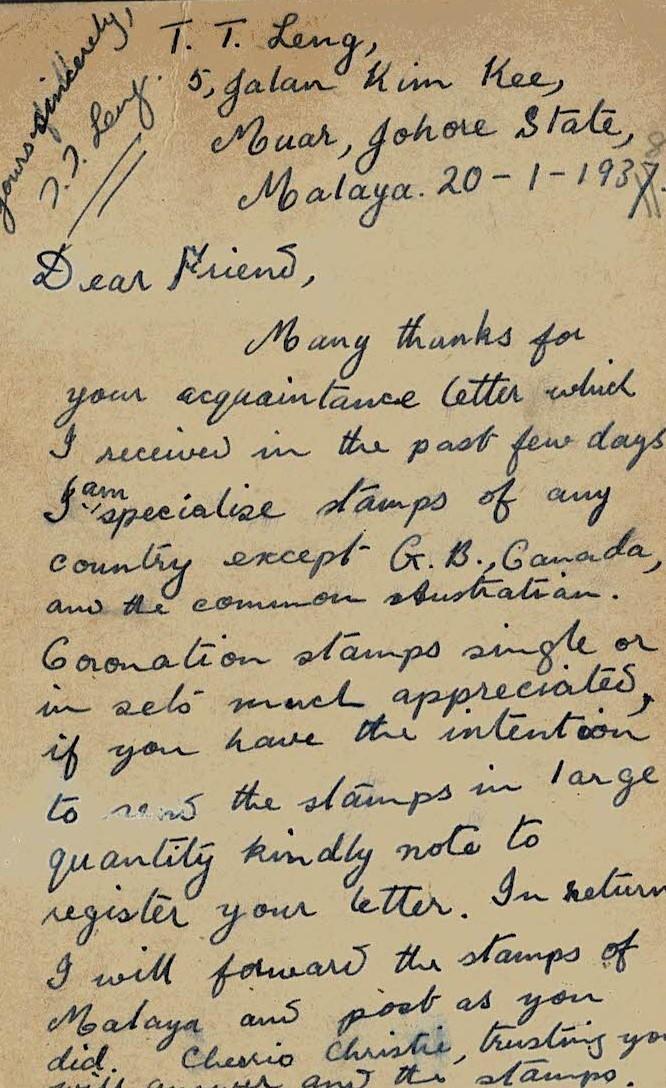 T. T. Leng,
5, Jalan Kim Kee,
Muar, Johore State,
Malaya. 20-1-1937.
Dear Friend,
Many thanks for
your acquaintance letter which
I received in the past few days
I am specialize stamps of any
country except G.B., Canada,
and the common Australian.
Coronation stamps single or
in sets much appreciated,
if you have the intention
to send the stamps in large
quantity kindly note to
register your letter. In return
I will forward the stamps of
Malaya and post as you
did. Cherrio Christie, trusting you
will answer and the stamps.
Yours sincerely,
T. T. Leng.